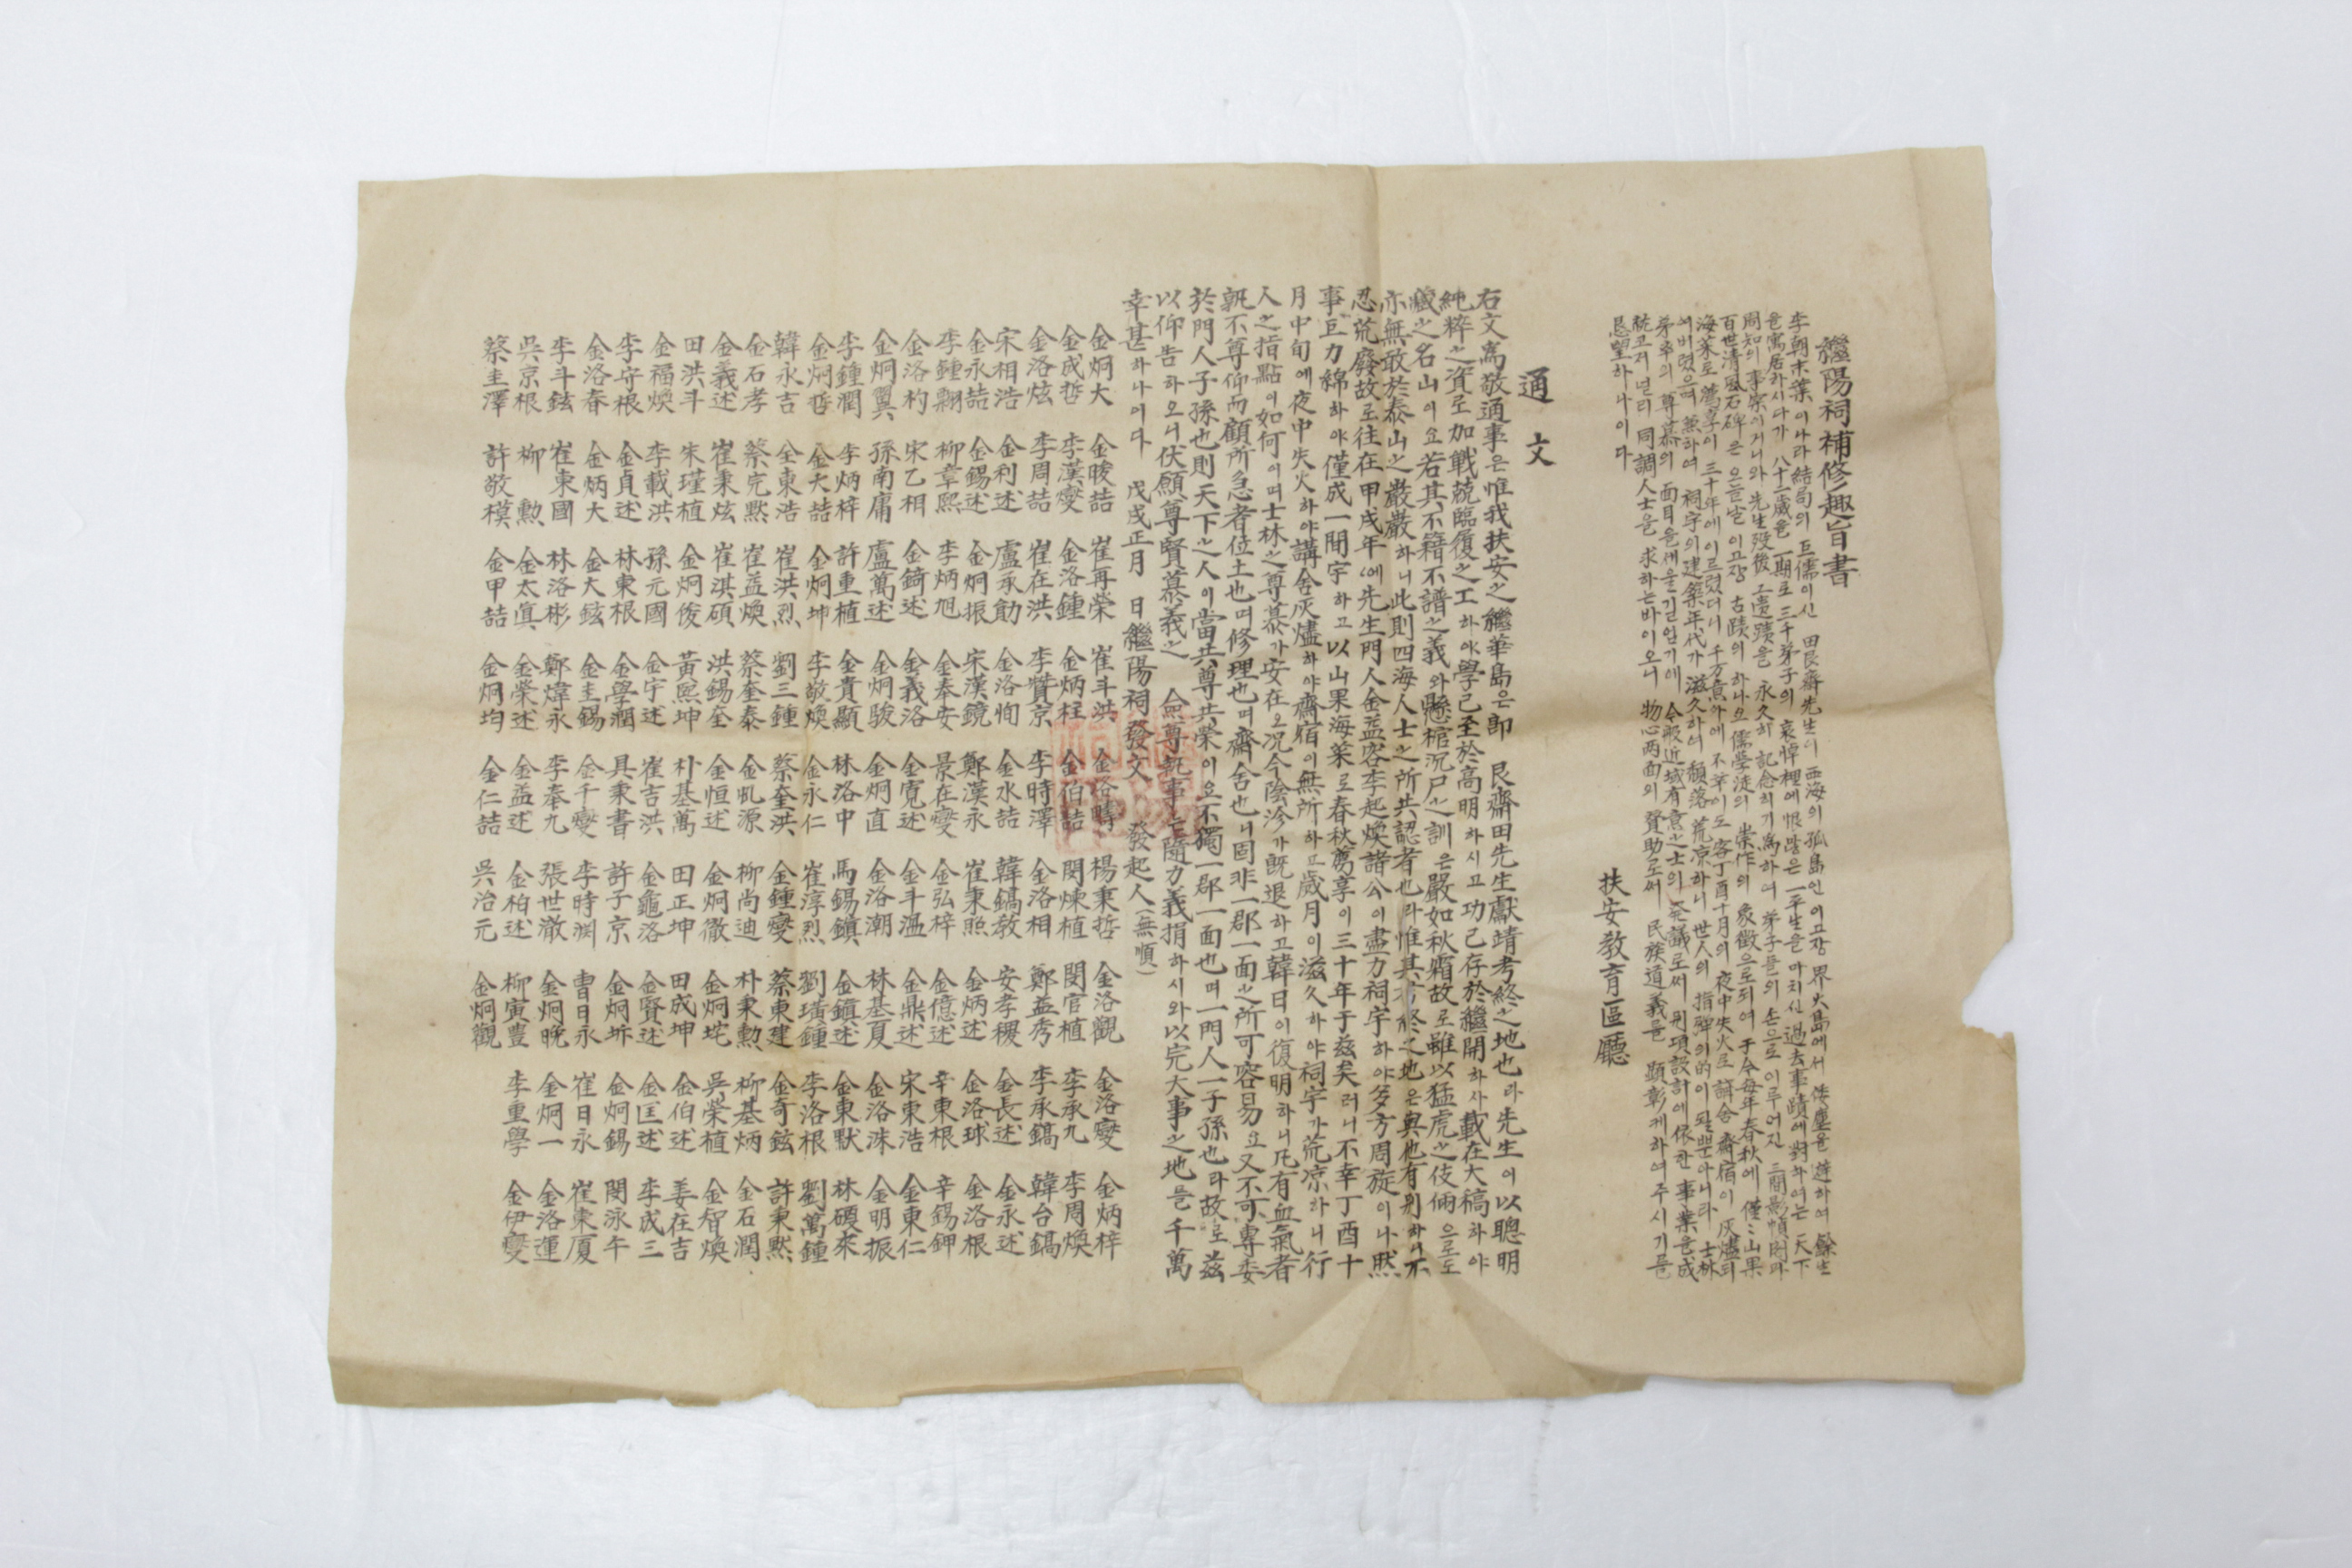 繼陽祠補修趣旨書
李朝末葉이나라結局의 巨儒이신 田艮齋先生이 西海의 孤島인 이고장 界火島에서 俗塵을 避하여 餘生
을 寓居하시다가 八十二歲을 一期로 三千弟子의 哀悼裡에 恨많은 一平生을 마치신 過去事蹟에 對하여는 天下
周知의 事實이거니와 先生歿後 그 遺蹟을 永久히 記念히기 爲하여 弟子들의 손으로 이루어진 三間影幀閣과
百世清風石碑은 오늘날 이고장 古蹟의 하나요 儒學徒의 崇作의 象徵으로되여 于今每年春秋에 僅々山果
海菜로 薦享이 三十年에 이르렀더니 千万意外에 不幸이도 客丁酉十月의 夜中失火로 講舍 齋宿이 灰燼되
여버렸으며 兼하여 祠宇의 建築年代가 滋久하여 頹落荒凉하니 世人의 指彈의的이 될뿐아니라 士林
弟子의 尊慕의 面目을세울길없기에 今般近域有意之士의 発議로써 別項設計에依한 事業을成
就고저 널리 同調人士을 求하는바이오니 物心両面의 賛助로써 民族道義를 顯彰케하여주시기를
恳望하나이다
扶安敎育區廳
通文
右文爲敬通事은惟我扶安之繼華島은卽 艮齋田先生獻靖考終之地也라先生이以聰明
純粹之資로加戰兢臨履之工하야學己至於高明하시고功己存於繼開하사載在大稿하야
藏之名山이요若其不籍不譜之義와懸棺沉尸之訓은嚴如秋霜故로雖以猛虎之伎倆으로도
亦無敢於泰山之巖巖하니此則四海人士之所共認者也라惟其考終之地은與他有別하니不
忍荒廢故로往在甲戌年에先生門人金益容李起煥諸公이盡力祠宇하야多方周旋이나然
事巨力綿하야僅成一間宇하고以山果海菜로春秋薦享이三十年于玆矣러니不幸丁酉十
月中旬에夜中失火하야講舍灰燼하야齋宿이無所하고歲月이滋久하야祠宇가荒凉하니行
人之指點이如何이며士林之尊慕가安在오况今陰沴가旣退하고韓日이復明하니凡有血氣者
孰不尊仰而顧所急者位土也며修理也며齋舍也니固非一郡一面之所可容易요又不可專委
於門人子孫也則天下之人이當共尊共榮이요不獨一郡一面也며一門人一子孫也라故로玆
以仰告하오니伏願尊賢慕義之 僉尊執事난隨力義捐하시와以完大事之地를千萬
幸甚하나이다 戊戌正月 日 繼陽祠 發文 發起人(無順)
金炯大 金畯喆 崔再榮 崔斗洪 金洛疇 楊秉哲 金洛觀 金洛燮 金炳梓
金成哲 李漢燮 金洛鍾 金炳柱 金伯喆 閔煉植 閔官植 李承九 李周煥
金洛炫 李周喆 崔在洪 李贊京 李時澤 金洛相 鄭益秀 李承鎬 韓台鎬
宋相浩 金利述 盧承勛 金洛恂 金水喆 韓鎬敎 安孝稷 金長述 金永述
金永喆 金錫述 金炯振 宋漢鏡 鄭漢永 崔秉照 金炳述 金洛球 金洛根
李鍾翺 柳章熙 李炳旭 金泰安 景在燮 金弘梓 金億述 辛東根 辛錫鉀
金洛杓 宋乙相 金錡述 金義洛 金寬述 金斗溫 金鼎述 宋東浩 金東仁
金炯翼 孫南庸 盧萬述 金炯駿 金炯直 金洛潮 林基夏 金洛洙 金明振
李鍾潤 李炳梓 許重植 金貴顯 林洛中 馬錫鎭 金鎭述 金東默 林碩來
金炯哲 金大喆 金炯坤 李敬煥 金永仁 崔淳烈 劉璜鍾 李洛根 劉萬鍾
韓永吉 全東浩 崔洪烈 劉三鍾 蔡奎洪 金鍾燮 蔡東建 金奇鉉 許秉默
金石孝 蔡完默 崔益煥 蔡奎泰 金虬源 柳尚迪 朴秉勲 柳基炳 金石潤
金義述 崔秉炫 崔淇碩 洪錫奎 金恒述 金炯徹 金炯垞 吳榮植 金智煥
田洪斗 朱瑾植 金炯俊 黃熙坤 朴基萬 田正坤 田成坤 金伯述 姜在吉
金福煥 李載洪 孫元國 金宇述 崔吉洪 金龜洛 金賢述 金匡述 李成三
李守根 金貞述 林東根 金學潤 具秉書 許子京 金炯坼 金炯錫 閔泳午
金洛春 金炳大 金大鉉 金圭錫 金千燮 李時澗 曺日永 崔日永 崔東厦
李斗鉉 崔東國 林洛彬 鄭煒永 李奉九 張世澈 金炯晩 金炯一 金洛運
吳京根 柳勲 金太眞 金榮述 金益述 金柏述 柳寅豊 李重學 金伊燮
蔡圭澤 許敬模 金甲喆 金炯均 金仁喆 吳治元 金炯觀